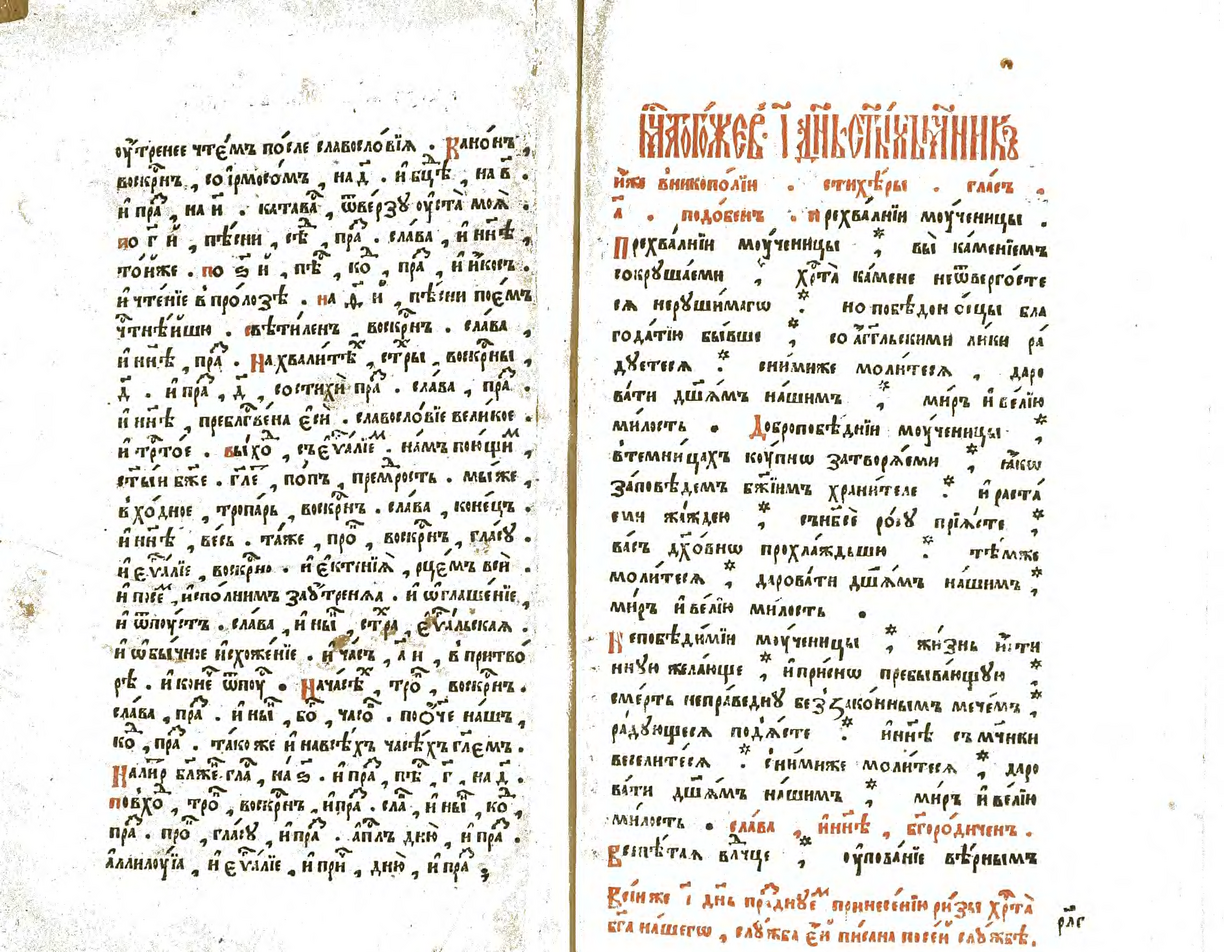 оу҆́тренее чте́мъ по́сле славосло́вїѧ . Кано́нъ ,
воскр҃нъ , со і҆рмосо́мъ , на д҃ . и҆ бц҃ѣ , на в҃ .
и҆ пра́ , на и҃ . катава́ , ѿве́рзу оуста̀ моѧ̀ .
по г҃ й , пѣ́сни , сѣ , пра́ . слава , и҆ нн҃ѣ ,
то́йже . по ѕ҃ й , пѣ , ко , пра́ , и҆ и҆́косъ .
и҆ чте́нїе в проло́зѣ . на д҃ , й , пѣ́сни пое́мъ
чⷭ҇тнѣ́йшю . свѣти́ленъ , воскр҃нъ . сла́ва ,
и҆ нн҃ѣ , пра́ . На хвали́тѣ , ст҃ры , воскр҃ны
д҃ . и҆ пра́ , д҃ , со стихѝ пра́ . сла́ва , пра́ .
и҆ нн҃ѣ , преблг҃ве́на є҆сѝ . славосло́вїе вели́кое .
и҆ трⷭ҇то́е . вы́хо , съ є҆ѵⷢ҇а́лїем . на́мъ пою́щим ,
ст҃ы́и бж҃е . гл҃е , по́пъ , прем҃рость . мы́ же ,
в хо́дное , тропа́рь , воскр҃нъ . сла́ва , коне́цъ .
и҆ нн҃ѣ , ве́сь . та́же , про́ , воскр҃нъ , гла́су .
и҆ є҆ѵⷢ҇а́лїе , воскр҃но . и҆ є҆ктенїѧ̀ , рце́мъ всѝ .
и҆ посе́м , и҆спо́лнимъ заоу́тренѧѧ . и҆ ѡ҆глаше́нїе ,
и҆ ѿпу́стъ . сла́ва , и҆ ны҃ , ст҃ра , є҆ѵⷢ҇а́льская .
и҆ ѡ҆бы́чное и҆схоже́нїе . и҆ ча́съ , а҃ й , в притво́
рѣ . и҆ коне́ ѿпу́ . На часѣ́ , тро́ , воскр҃нъ .
сла́ва , пра́ . и҆ ны҃ , бо́ , часо́ . по ѻ҆́ч҃е на́шъ ,
ко́ , пра́ . та́коже и҆ на всѣ́хъ часѣ́хъ гл҃емъ .
На ли́р бл҃же́ гла , на ѕ҃ . и҆ пра́ , пѣ , г҃ , на д҃ .
по вхо́ , тро́ , воскр҃нъ , и҆ пра́ . сла , и҆ ны҃ , ко ,
пра́ . про́ , гла́су , и҆ пра́ . а҆пⷭ҇лъ дню̀ , и҆ пра́ .
аллилоу́їа , и҆ є҆ѵⷢ҇а́лїе , и҆ при́ , дню̀ , и҆ пра́ ;
Мⷭ҇ца тогѡ́же въ і҃ дн҃ь ст҃ы́хъ мч҃никъ
и҆́же в нико́полїи . стихѣ́ры . гла́съ .
а҃ . подо́бенъ . прехва́лнїи моу́ченицы .
Прехва́лнїи моу́ченицы * вы̀ ка́менїемъ
сокруша́еми , хрⷭ҇та̀ ка́мене не ѿверго́сте
сѧ неруши́магѡ * но побѣдоно́сцы бла
года́тїю бы́вше , со а҆́гг҃льскими ли́ки ра́
дуетесѧ * с ни́миже моли́тесѧ , даро
ва́ти дш҃а́мъ на́шимъ * , ми́ръ и҆ ве́лїю
ми́лость . Доброобѣ́днїи моу́ченицы *
в темни́цахъ коу́пнѡ затворѧ́еми * , ꙗ҆́кѡ
за́повѣдемъ бж҃їимъ храни́теле * и҆ раста́
еми жа́ждею * съ нб҃сѐ ро́су прїѧ́сте , *
ва́съ дх҃о́внѡ прохлажда́ьшю * тѣ́мже
моли́тесѧ , дарова́ти дш҃а́мъ на́шимъ , *
ми́ръ и҆ ве́лїю ми́лость .
Непобѣди́мїи моу́ченицы * жи́знь и҆́сти
нную жела́юще * и҆ при́снѡ пребыва́ющую *
сме́рть непра́ведну беззако́ннымъ мече́мъ , *
ра́дующесѧ подъѧ́сте * и҆ нн҃ѣ съ мч҃нки
весели́тесѧ * с ни́миже моли́тесѧ , * даро
ва́ти дш҃а́мъ на́шимъ * ми́ръ и҆ ве́лїю
ми́лость . сла́ва , и҆ нн҃ѣ , бг҃оро́диченъ .
Всепѣ́таѧ влⷣчце * оу҆пова́нїе вѣ́рнымъ
Во́ й же і҃ дн҃ь пра́зднуем принесе́нїю ри́зы хрⷭ҇та̀
бг҃а на́шегѡ , слу́жба є҆́й пи́сана по се́й слу́жбѣ .
рл҃г